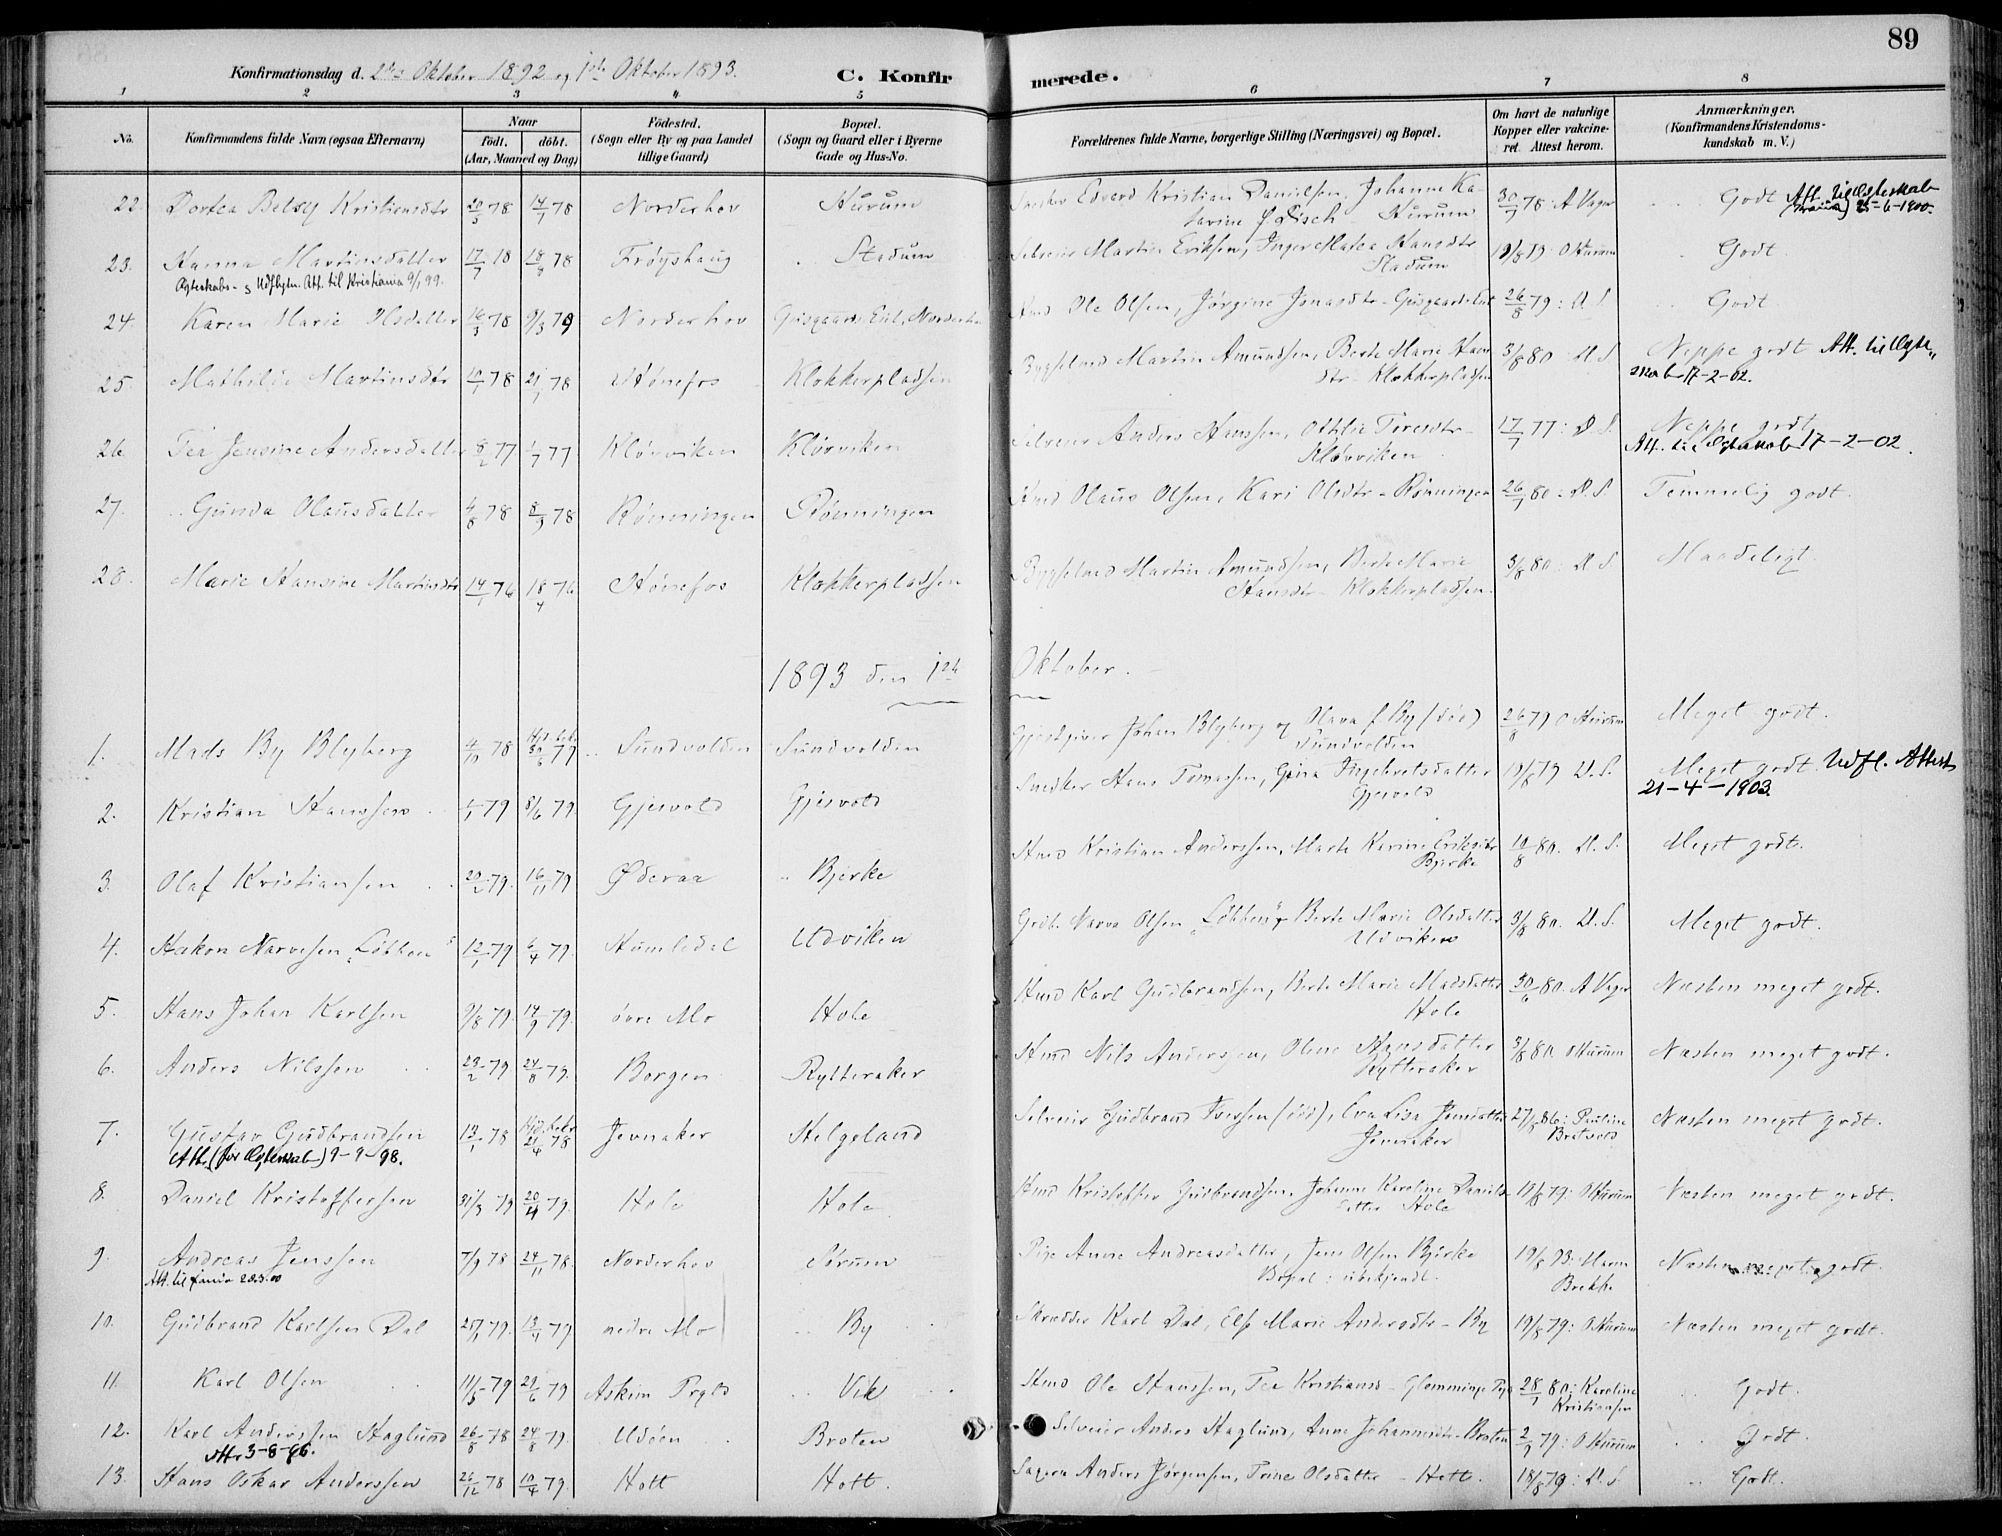 89
Konfirmationsdag d. 2den Oktober 1892 og 1ste Oktober 1893.
C. Konfirmerede.
1 2 3 4 5 6 7 8
No. Konfirmandens fulde Navn (ogsaa Efternavn)
Naar
födt. döbt.
(Aar, Maaned og Dag)
Födested.
(Sogn eller By og paa Landet
tillige Gaard)
Bopæl.
(Sogn og Gaard eller i Byerne
Gade og Hus-No.
Forældrenes fulde Navne, borgerlige Stilling (Næringsvei) og Bopæl.
Om havt de naturlige
Kopper eller vakcine-
ret. Attest herom.
Anmærkninger.
(Konfirmandens Kristendoms-
kundskab m. V.)
22. Dortea Betsy Kristiansdtr 20/5 78 14/7 78 Norderhov Hurum Snedker Edvard Kristian Danielsen, Johanne Ka- 30/7 78: A Vager Godt Att. til Ægteskab
tarine Disch Hurum 25-6-1900.
23. Hanna Martinsdatter 17/7 78 18/8 78 Frøyshaug Stadum Selveier Martin Eriksen, Inger Matea Hansdtr 19/8 79: O Hurum Godt.
Ægteskabs- & Udflytn. Att. til Kristiania 9/1 99. Stadum
24. Karen Marie Olsdatter 16/3 78 9/3 79 Norderhov Gusgaards Eiet, Norderhov Hmd Ole Olsen, Jørgine Jonasdtr - Gusgaards Eiet 26/8 79: D. S. Godt
25. Mathilde Martinsdtr 10/1 78 21/1 78 Hønefos Klokkerpladsen Bygselmd Martin Amundsen, Berte Marie Hans 3/8 80: D. S. Neppe godt Att. til Ægte-
dtr - Klokkerpladsen skab 17-2-02.
26. Tea Jensine Andersdatter 8/2 77 1/7 77 Kløvviken Kløvviken Selveier Anders Hanssen, Othlie Toresdtr - 17/7 77: D. S. Neppe godt
Kløvviken Att. til Ægteskab 17-2-02.
27. Gunda Olausdatter 4/8 78 8/9 78 Rønningen Rønningen Hmd Olaus Olsen, Kari Olsdtr - Rønningen 26/7 80: D. S. Temmelig godt.
28. Marie Hansine Martinsdtr 14/1 76 18/4 76 Hønefos Klokkerpladsen Bygselmd Martin Amundsen, Berte Marie 3/8 80: D. S. Maadeligt.
Hansdtr - Klokkerpladsen.
1893 den 1ste Oktober.
1. Mads By Blyberg 4/10 78 Hjd. døbt 30/6 79 Sundvolden Sundvolden Gjestgiver Johan Blyberg og Olava f. By (død) 26/8 79 O Hurum Meget godt.
Sundvolden
2. Kristian Hanssen 1/1 79 8/6 79. Gjesvold Gjesvold Snedker Hans Tomassen, Gura Ingebretsdatter 19/8 79 D. S. Meget godt Udfl. Attest
Gjesvold 21-4-1903.
3. Olaf Kristiansen 20/2 79. 16/11 79 Øderaa Bjerke Hmd Kristian Anderssen, Marte Karine Eriksdtr 10/8 80. D. S. Meget godt.
Bjerke
4. Hakon Narvesen "Løkken" 12/1 79 6/4 79. Humledal Udviken Grdb. Narve Olsen "Løkken", Berte Marie Olsdatter 3/8 80. D. S. Meget godt.
Udviken
5. Hans Johan Karlsen 9/8 79. 14/9 79. øvre Mo Hole Hmd Karl Gudbrandsen, Berte Marie Madsdatter 30/6 80. A Vager Næsten meget godt.
Hole
6. Anders Nilssen 23/2 79 24/8 79. Borgen Rytteraker Hmd Nils Anderssen, Olene Hansdatter 3/8 80 O Hurum Næsten meget godt.
Rytteraker
7. Gustav Gudbrandsen 13/1 78 Hjd. døbt 21/4 78 Jevnaker Helgeland Selveier Gudbrand Iversen (død), Eva Lisa Jonsdatter 27/8 86: Pauline Næsten meget godt.
Att. (for Ægteskab) 9-9-98. Jevnaker Bretvold
8. Daniel Kristoffersen 31/3 79 20/4 79. Hole Hole Hmd Kristoffer Gudbrandsen, Johanne Karoline Daniels- 19/8 79: O Hurum Næsten meget godt.
datter Hole
9. Andreas Jenssen 7/9 78 24/11 78. Norderhov Sørum Pige Anne Andreasdatter, Jens Olsen Bjerke 19/8 93: Maren Næsten meget godt.
Att. til 28.3.00 Bopæl: ubekjendt. Brekke
10. Gudbrand Karlsen Dal 25/1 79. 13/4 79 nedre Mo By Skrædder Karl Dal, Else Marie Andersdtr - By 19/8 79: O Hurum Næsten meget godt.
11. Karl Olsen 11/5 79 29/6 79 Askim Prgld Vik Hmd Ole Hanssen, Tea Kristiansd - 28/1 80: Karoline Godt.
Kristiansen
12. Karl Anderssen Haglund 26/8 78 24/8 79. Udøen Broten Selveier Anders Haglund, Anne Johannesdtr - Broten 2/9 79: O Hurum Godt.
Att. 3-8-96.
13. Hans Oskar Anderssen 26/12 78 10/4 79. Holt Holt. Anders Jørgensen, Trine Olsdatter - Holt. 18/8 79: D. S. Godt.